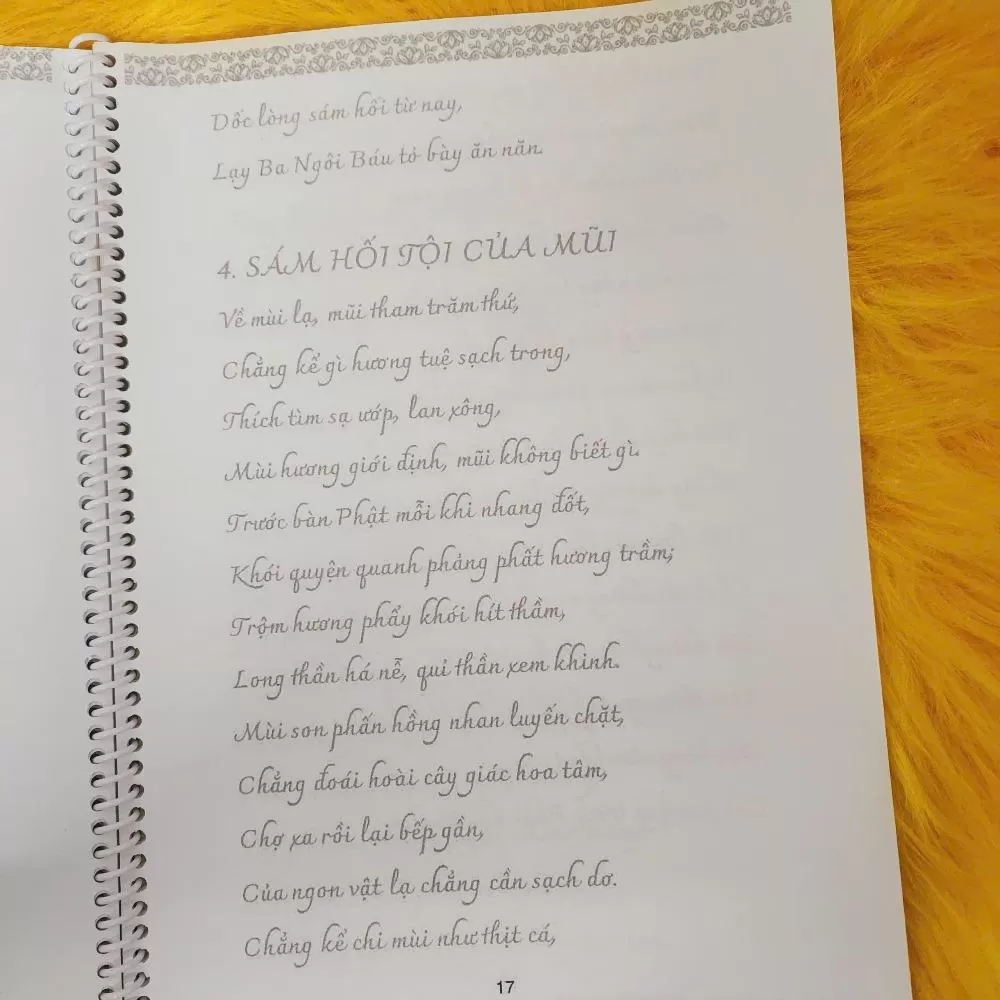 Dốc lòng sám hối từ nay,
Lạy Ba Ngôi Báu tỏ bày ăn năn.
4. SÁM HỐI TỘI CỦA MŨI
Về mùi lạ, mũi tham trăm thứ,
Chẳng kể gì hương tuệ sạch trong,
Thích tìm sạ ướp, lan xông,
Mùi hương giới định, mũi không biết gì.
Trước bàn Phật mỗi khi nhang đốt,
Khói quyện quanh phảng phất hương trầm;
Trộm hương phẩy khói hít thầm,
Long thần há nễ, quỉ thần xem khinh.
Mùi son phấn hồng nhan luyến chặt,
Chẳng đoái hoài cây giác hoa tâm,
Chợ xa rồi lại bếp gần,
Của ngon vật lạ chẳng cần sạch dơ.
Chẳng kể chi mùi như thịt cá,
17